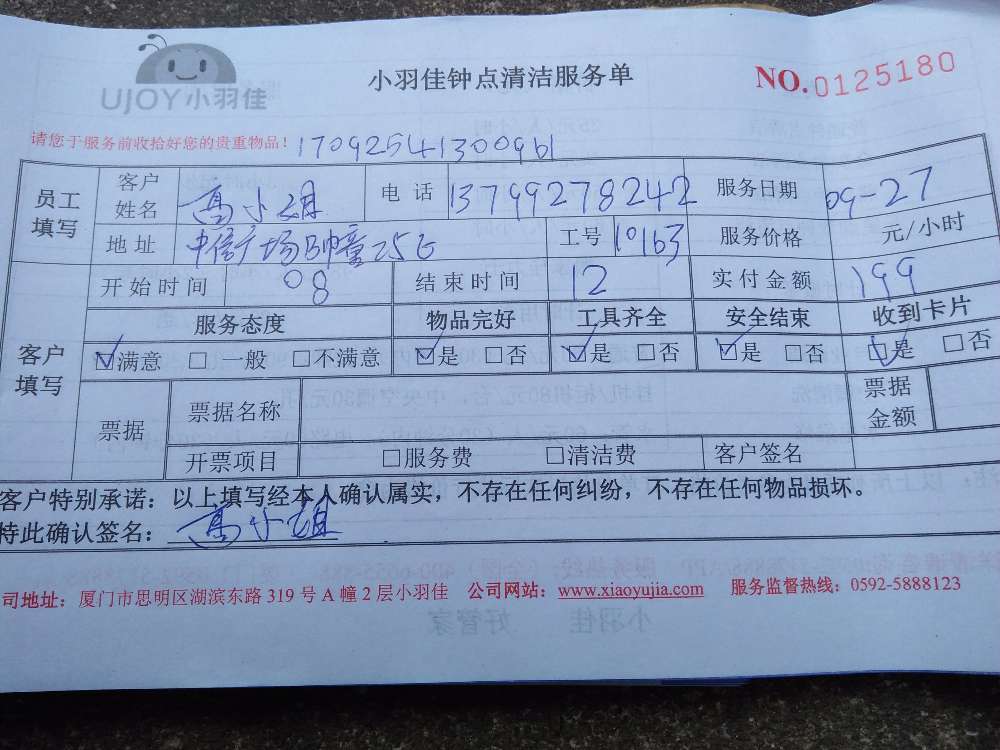 UJOY小羽佳
小羽佳钟点清洁服务单
NO.0125180
请您于服务前收拾好您的贵重物品！170925541300961
员工填写 客户姓名 高小姐 电话 13799278242 服务日期 09-27
地址 中信广场B帅童25E 工号 10163 服务价格 元/小时
客户填写 开始时间 08 结束时间 12 实付金额 199
服务态度 物品完好 工具齐全 安全结束 收到卡片
☑满意 □一般 □不满意 ☑是 □否 ☑是 □否 ☑是 □否 ☑是 □否
票据 票据名称 票据金额
开票项目 □服务费 □清洁费 客户签名
客户特别承诺：以上填写经本人确认属实，不存在任何纠纷，不存在任何物品损坏。
特此确认签名：高小姐
司地址：厦门市思明区湖滨东路319号A幢2层小羽佳 公司网站：www.xiaoyujia.com 服务监督热线：0592-5888123